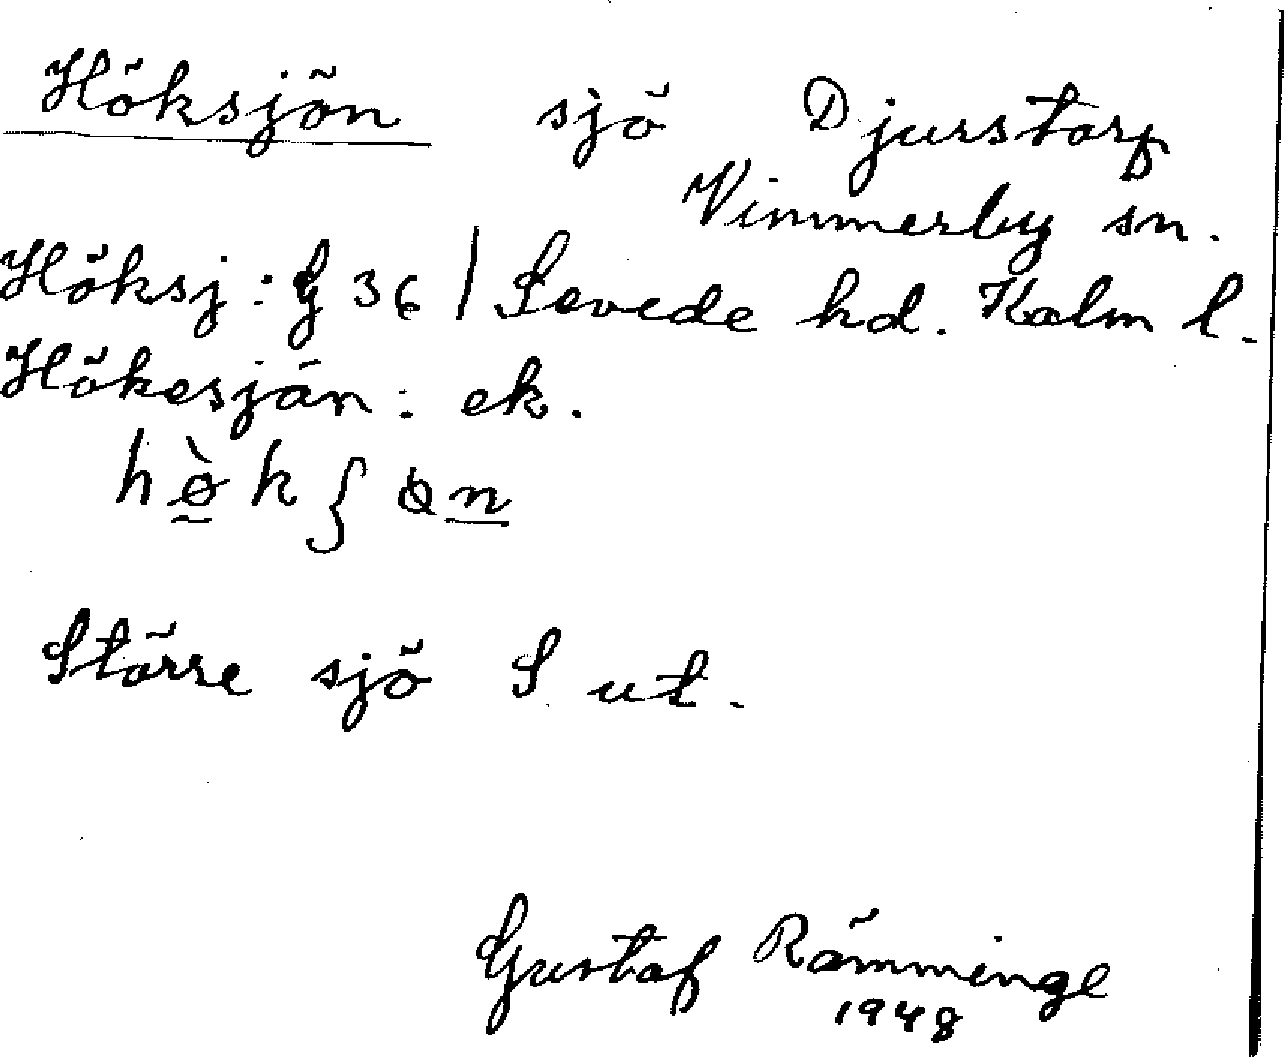 Höksjön sjö Djurstorp
Vimmerby sn.
Höksj: G 36 / Sevede hd. Kalm l.
Hökesjön: ek.
Större sjö S ut.
Gustaf Rämminge
1948